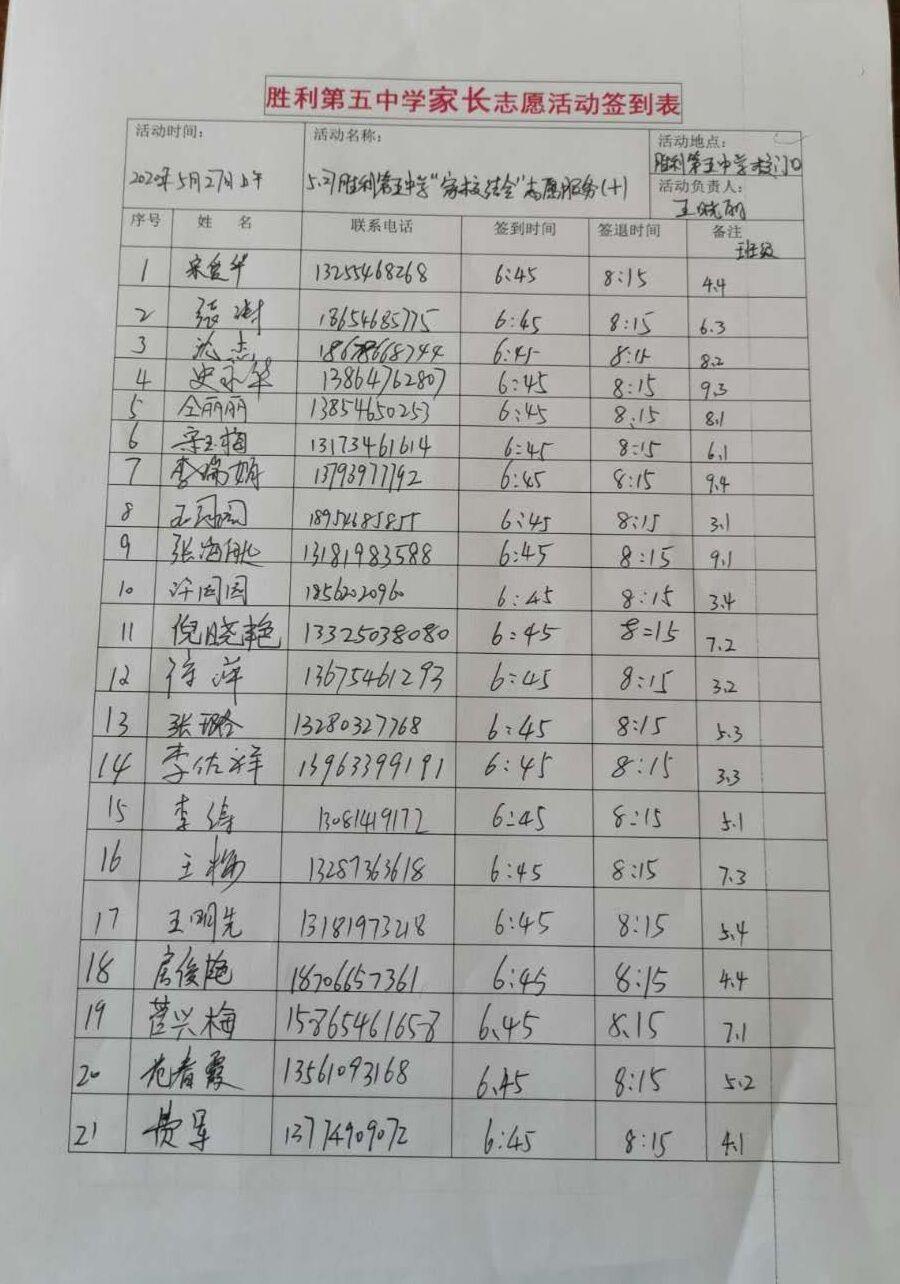 胜利第五中学家长志愿活动签到表
活动时间： 活动名称： 活动地点：
2020年5月27日上午 5.27胜利第五中学“家校结合”志愿服务(十) 胜利第五中学校门口
活动负责人：
王晓丽
序号 姓 名 联系电话 签到时间 签退时间 备注
班级
1 宋爱华 13255468268 6:45 8:15 4.4
2 张 树 18654685775 6:45 8:15 6.3
3 沈杰 6:45 8:15 8.2
4 史永华 13864762807 6:45 8:15 9.3
5 仝丽丽 13854650253 6:45 8:15 8.1
6 宋玉梅 13173461614 6:45 8:15 6.1
7 李瑞娟 13793977792 6:45 8:15 9.4
8 18954685855 6:45 8:15 3.1
9 张海航 13181983588 6:45 8:15 9.1
10 许园园 18562020960 6:45 8:15 3.4
11 倪晓艳 13325038080 6:45 8=15 7.2
12 徐萍 13675461293 6:45 8:15 3.2
13 张璐 13280327768 6:45 8:15 5.3
14 李佐祥 13963399191 6:45 8:15 3.3
15 李涛 13081419172 6:45 8:15 5.1
16 王梅 13287363618 6:45 8:15 7.3
17 王明先 13181973218 6:45 8:15 5.4
18 房俊艳 18706657361 6:45 8:15 4.4
19 菅兴梅 15865461658 6.45 8.15 7.1
20 范春霞 13561093168 6.45 8:15 5.2
21 费军 13774909072 6:45 8:15 4.1